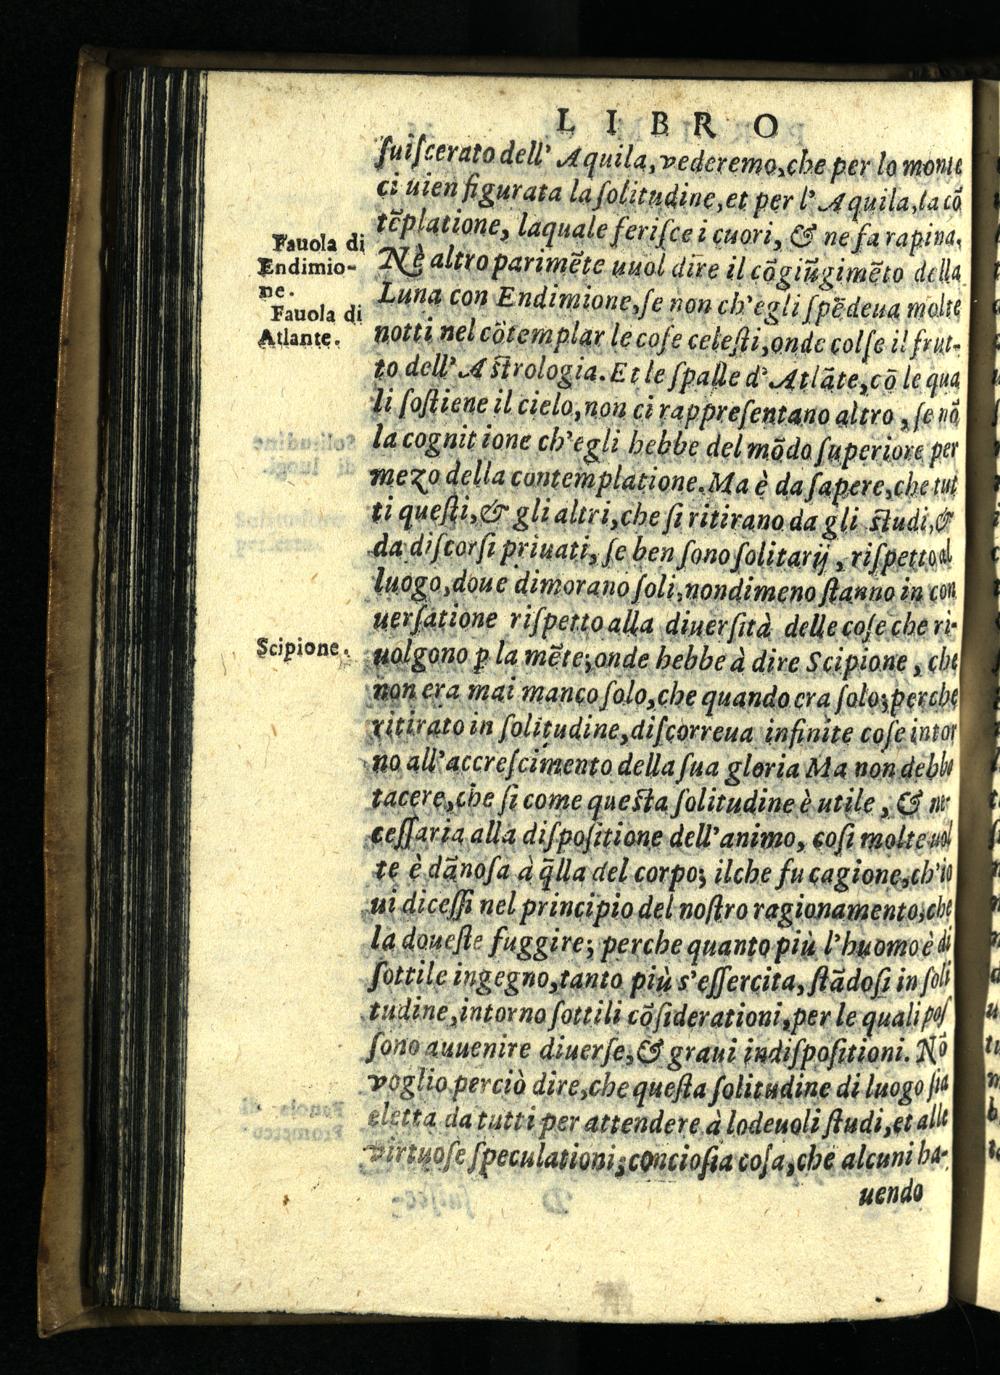 LIBRO
ſuiſcerato dell' Aquila, vederemo, che per lo monte
ci uien figurata la ſolitudine, et per l' Aquila, la cō
tēplatione, laquale feriſce i cuori, & ne fa rapina.
Fauola di
Endimio-
ne.
Nè altro parimēte uuol dire il cōgiūgimēto della
Luna con Endimione, ſe non ch'egli ſpēdeua molte
Fauola di
Atlante.
notti nel cōtemplar le coſe celeſti, onde colſe il frut-
to dell' Aſtrologia. Et le ſpalle d' Atlāte, cō le qua
li ſoſtiene il cielo, non ci rappreſentano altro, ſe nō
la cognitione ch'egli hebbe del mōdo ſuperiore per
mezo della contemplatione. Ma è da ſapere, che tut
ti queſti, & gli altri, che ſi ritirano da gli ſtudi, &
da diſcorſi priuati, ſe ben ſono ſolitarij, riſpetto al
luogo, doue dimorano ſoli, nondimeno ſtanno in con
uerſatione riſpetto alla diuerſità delle coſe che ri-
Scipione.
uolgono ꝑ la mēte; onde hebbe à dire Scipione, che
non era mai manco ſolo, che quando era ſolo; perche
ritirato in ſolitudine, diſcorreua infinite coſe intor
no all'accreſcimento della ſua gloria Ma non debbo
tacere, che ſi come queſta ſolitudine è utile, & ne-
ceſſaria alla diſpoſitione dell'animo, coſi molte uol
te è dānoſa à q̄lla del corpo; ilche fu cagione, ch'io
ui diceſſi nel principio del noſtro ragionamento, che
la doueſte fuggire; perche quanto più l'huomo è di
ſottile ingegno, tanto più s'eſſercita, ſtādoſi in ſoli
tudine, intorno ſottili cōſiderationi, per le quali poſ
ſono auuenire diuerſe, & graui indiſpoſitioni. Nō
voglio perciò dire, che queſta ſolitudine di luogo ſia
eletta da tutti per attendere à lodeuoli ſtudi, et alle
virtuoſe ſpeculationi; concioſia coſa, che alcuni ha-
uendo